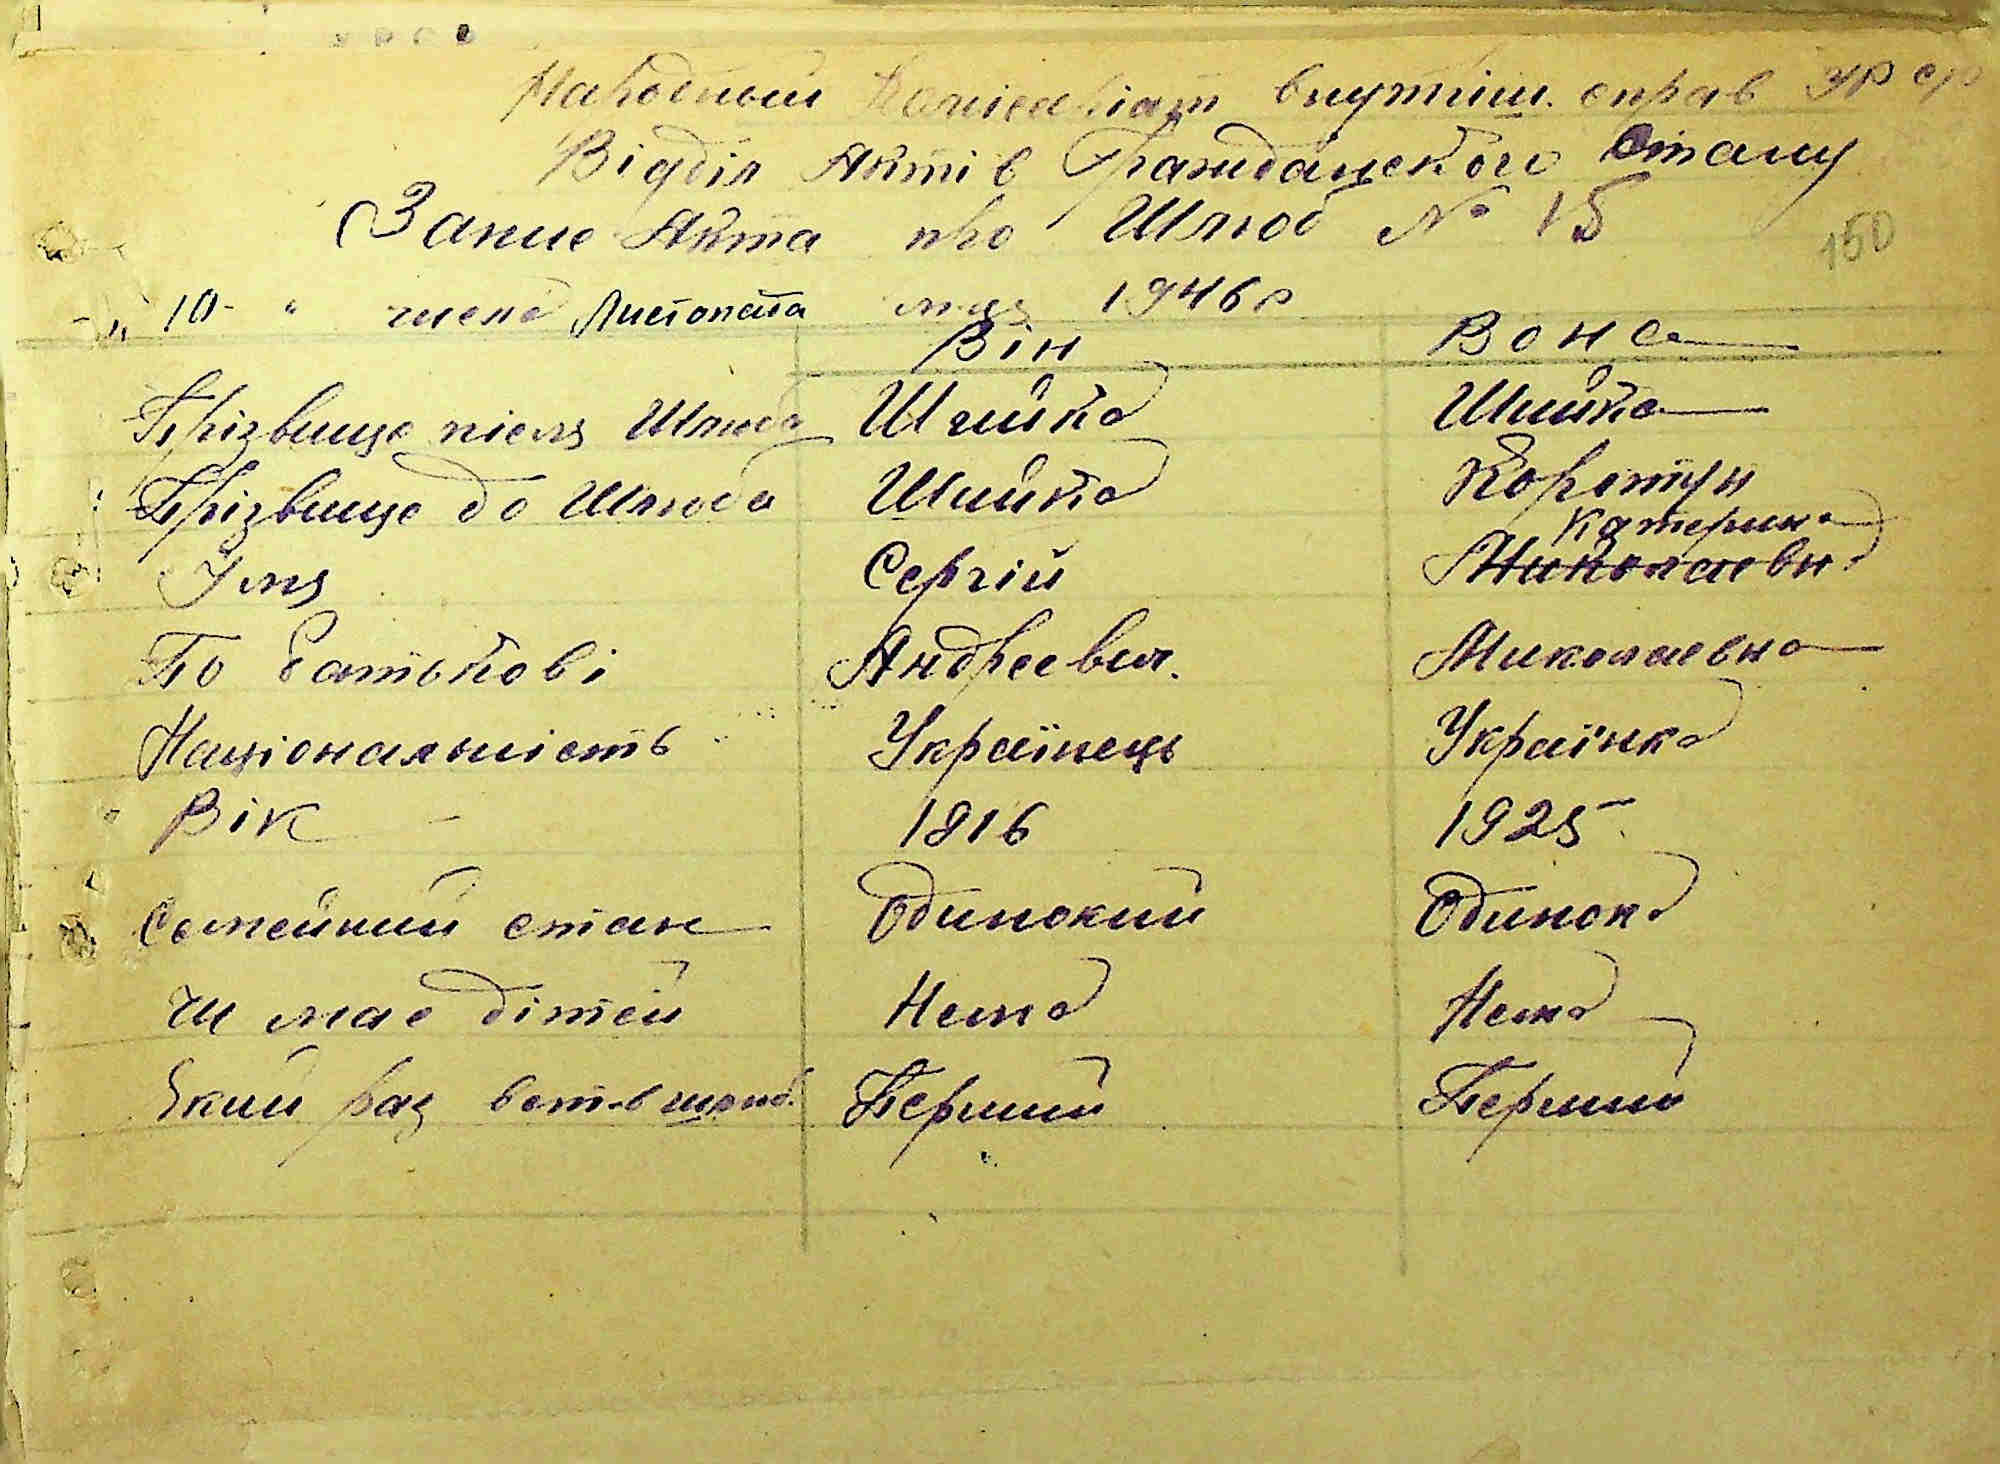 Народный Комисаріат внутріш. справ УРСР
Відділ Актів Гражданского Стану
Запис Акта про Шлюб № 15
150
„ 10 " числа Листопата м-ця 1946 р
Він Вона
Прізвище після Шлюба Шийка Шийка
Прізвище до Шлюба Шийка Коротун
Імя Сергій Катерина Николаевн.
По Батькові Андреевич. Николаевна
Національність Українець Українка
Вік 1816 1925
Семейний стан Одинокий Одинока
Чи має дітей Нема Нема
Який раз вст. в шлюб. Перший Перший